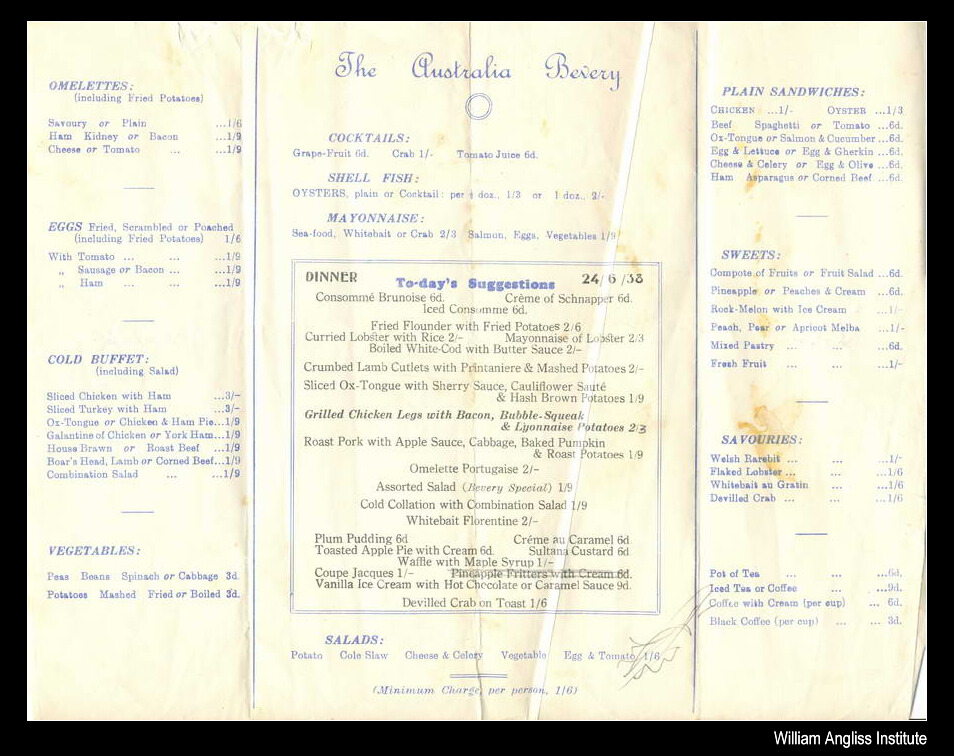 OMELETTES:
(including Fried Potatoes)
Savoury or Plain ...1/6
Ham Kidney or Bacon ...1/9
Cheese or Tomato ... ...1/9
EGGS Fried, Scrambled or Poached
(including Fried Potatoes) 1/6
With Tomato ... ... ...1/9
„ Sausage or Bacon ... ...1/9
„ Ham ... ... ...1/9
COLD BUFFET:
(including Salad)
Sliced Chicken with Ham ...3/–
Sliced Turkey with Ham ...3/–
Ox-Tongue or Chicken & Ham Pie...1/9
Galantine of Chicken or York Ham...1/9
House Brawn or Roast Beef ...1/9
Boar's Head, Lamb or Corned Beef...1/9
Combination Salad ... ...1/9
VEGETABLES:
Peas Beans Spinach or Cabbage 3d.
Potatoes Mashed Fried or Boiled 3d.
The Australia Bevery
COCKTAILS:
Grape-Fruit 6d. Crab 1/- Tomato Juice 6d.
SHELL FISH:
OYSTERS, plain or Cocktail: per ½ doz., 1/3 or 1 doz., 2/-
MAYONNAISE:
Sea-food, Whitebait or Crab 2/3 Salmon, Eggs, Vegetables 1/9
DINNER To-day's Suggestions 24/6/38
Consommé Brunoise 6d. Crème of Schnapper 6d.
Iced Consomme 6d.
Fried Flounder with Fried Potatoes 2/6
Curried Lobster with Rice 2/– Mayonnaise of Lobster 2/3
Boiled White-Cod with Butter Sauce 2/–
Crumbed Lamb Cutlets with Printaniere & Mashed Potatoes 2/–
Sliced Ox-Tongue with Sherry Sauce, Cauliflower Sauté
& Hash Brown Potatoes 1/9
Grilled Chicken Legs with Bacon, Bubble-Squeak
& Lyonnaise Potatoes 2/3
Roast Pork with Apple Sauce, Cabbage, Baked Pumpkin
& Roast Potatoes 1/9
Omelette Portugaise 2/–
Assorted Salad (Bevery Special) 1/9
Cold Collation with Combination Salad 1/9
Whitebait Florentine 2/–
Plum Pudding 6d Créme au Caramel 6d
Toasted Apple Pie with Cream 6d. Sultana Custard 6d
Waffle with Maple Syrup 1/–
Coupe Jacques 1/– Pineapple Fritters with Cream 6d.
Vanilla Ice Cream with Hot Chocolate or Caramel Sauce 9d.
Devilled Crab on Toast 1/6
SALADS:
Potato Cole Slaw Cheese & Celery Vegetable Egg & Tomato 1/6
(Minimum Charge, per person, 1/6)
PLAIN SANDWICHES:
CHICKEN ...1/- OYSTER ...1/3
Beef Spaghetti or Tomato ...6d.
Ox-Tongue or Salmon & Cucumber ...6d.
Egg & Lettuce or Egg & Gherkin ...6d.
Cheese & Celery or Egg & Olive ...6d.
Ham Asparagus or Corned Beef ...6d.
SWEETS:
Compote of Fruits or Fruit Salad ...6d.
Pineapple or Peaches & Cream ...6d.
Rock-Melon with Ice Cream ...1/-
Peach, Pear or Apricot Melba ...1/-
Mixed Pastry ... ... ...6d.
Fresh Fruit ... ... ...1/-
SAVOURIES:
Welsh Rarebit ... ... ...1/-
Flaked Lobster ... ... ...1/6
Whitebait au Gratin ... ...1/6
Devilled Crab ... ... ...1/6
Pot of Tea ... ... ...6d.
Iced Tea or Coffee ... ...9d.
Coffee with Cream (per cup) ... 6d.
Black Coffee (per cup) ... ... 3d.
William Angliss Institute